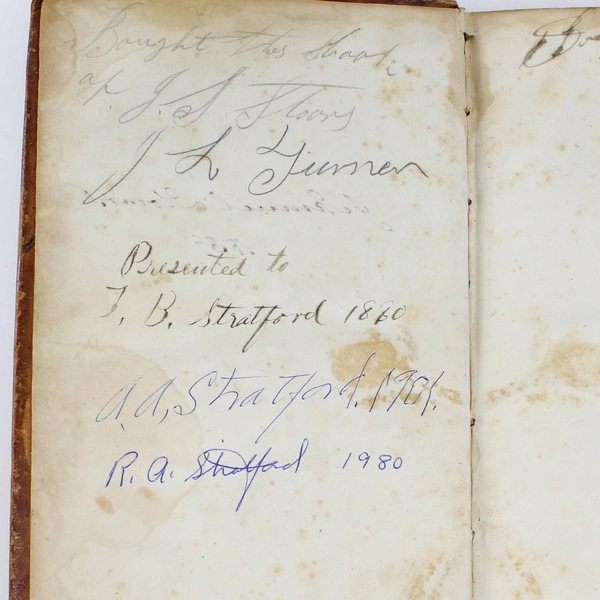 Bought this book
of J. S. Stoors
J L Turner
Presented to
T. B. Stratford 1860
A. A, Stratford. 1901.
R. A. Stratford 1980